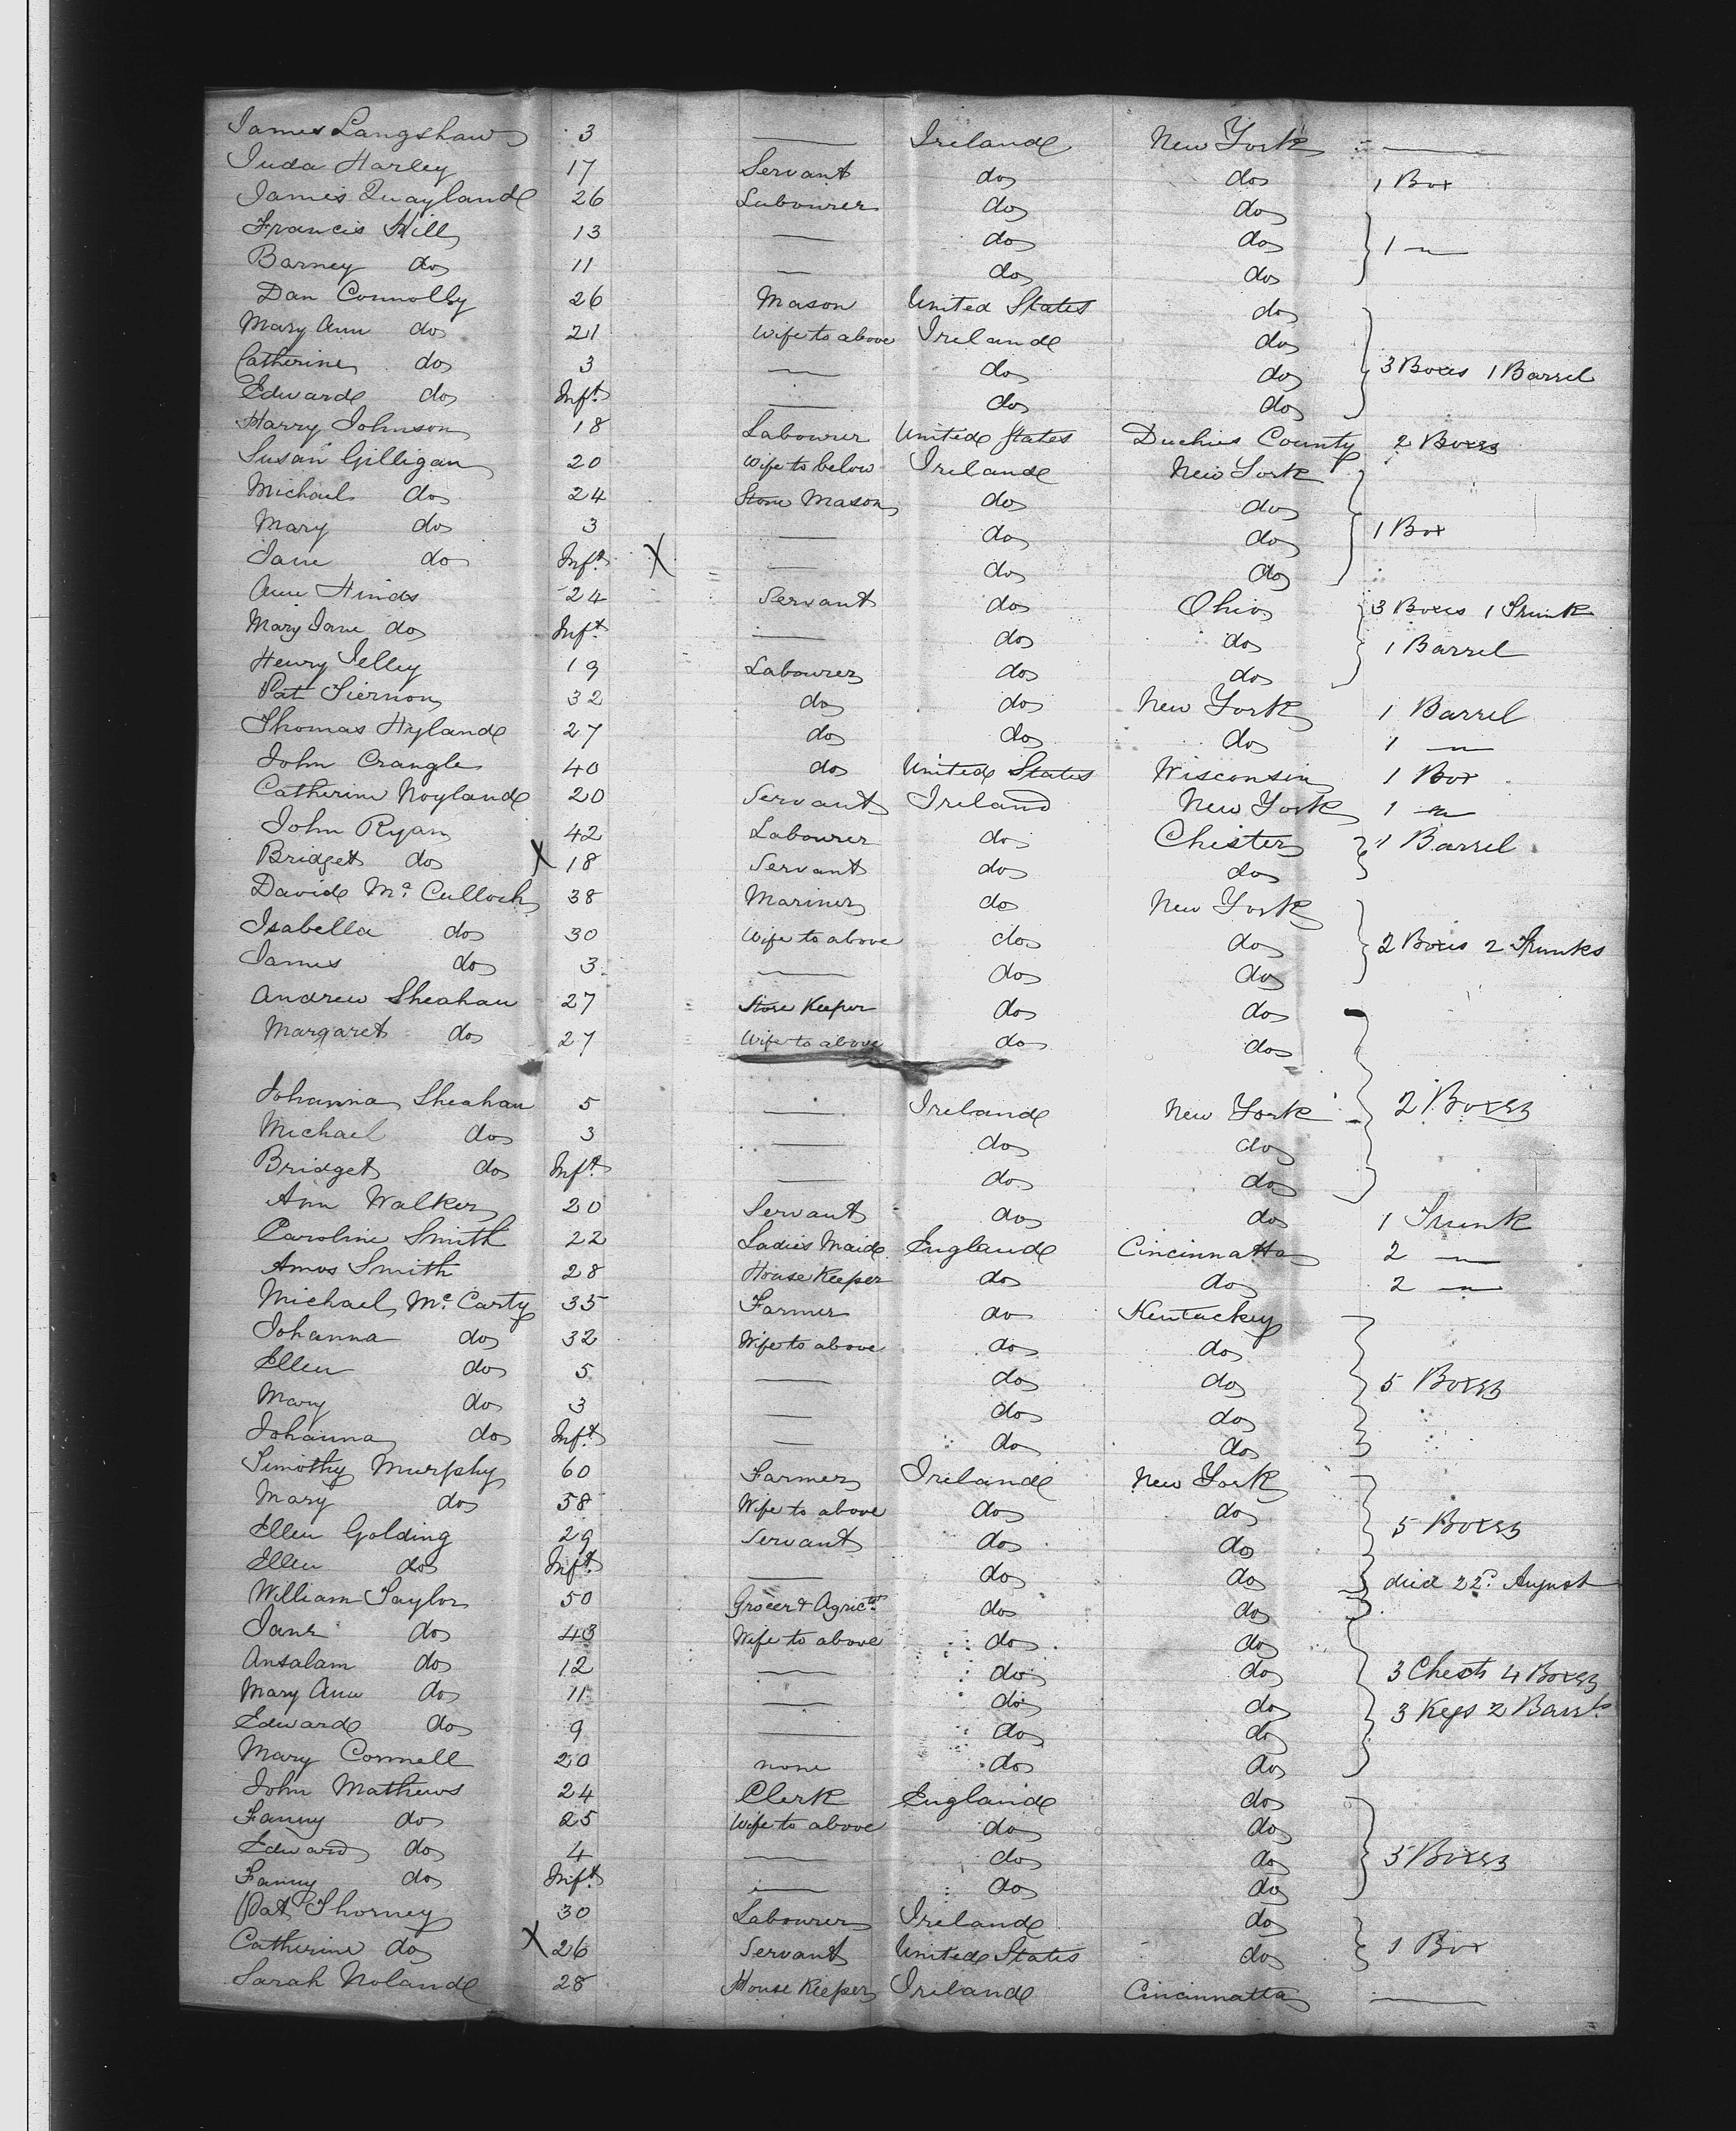 James Langshaw 3 — Ireland New York —
Juda Harley 17 Servant do do 1 Box
James Quayland 26 Labourer do do
Francis Hill 13 — do do 1 〃
Barney do 11 — do do
Dan Connolly 26 Mason United States do
Mary Ann do 21 Wife to above Ireland do
Catherine do 3 — do do 3 Boxes 1 Barrel
Edward do Inft — do do
Harry Johnson 18 Labourer United States Duchies County 2 Boxes
Susan Gilligan 20 Wife to below Ireland New York
Michael do 24 Stone Mason do do
Mary do 3 — do do 1 Box
Jane do Inft X — do do
Ann Hinds 24 Servant do Ohio 3 Boxes 1 Trunk
Mary Jane do Inft — do do 1 Barrel
Henry Jelley 19 Labourer do do
Pat Tiernon 32 do do New York 1 Barrel
Thomas Hyland 27 do do do 1 〃
John Crangle 40 do United States Wisconsin 1 Box
Catherine Noyland 20 Servant Ireland New York 1 〃
John Ryan 42 Labourer do Chister 1 Barrel
Bridget do X 18 Servant do do
David Mc Culloch 38 Mariner do New York
Isabella do 30 Wife to above do do 2 Boxes 2 Trunks
James do 3 — do do
Andrew Sheahan 27 Store Keeper do do
Margaret do 27 Wife to above do do
Johanna Sheahan 5 — Ireland New York 2 Boxes
Michael do 3 — do do
Bridget do Inft — do do
Ann Walker 20 Servant do do 1 Trunk
Caroline Smith 22 Ladies Maid England Cincinnatta 2 〃
Amos Smith 28 House Keeper do do 2 〃
Michael Mc Carty 35 Farmer do Kentuckey
Johanna do 32 Wife to above do do
Ellen do 5 — do do 5 Boxes
Mary do 3 — do do
Johanna do Inft — do do
Timothy Murphy 60 Farmer Ireland New York
Mary do 58 Wife to above do do 5 Boxes
Ellen Golding 29 Servant do do
Ellen do Inft — do do died 22d August
William Taylor 50 Grocer & Agrictr do do
Jane do 43 Wife to above do do
Ansalam do 12 — do do 3 Chests 4 Boxes
Mary Ann do 11 — do do 3 Kegs 2 Barrls
Edward do 9 — do do
Mary Connell 20 none do do
John Mathews 24 Clerk England do
Fanny do 25 Wife to above do do
Edward do 4 — do do 5 Boxes
Fanny do Inft — do do
Pat Thorney 30 Labourer Ireland do
Catherine do X 26 Servant United States do 1 Box
Sarah Noland 28 House Keeper Ireland Cincinnatta —